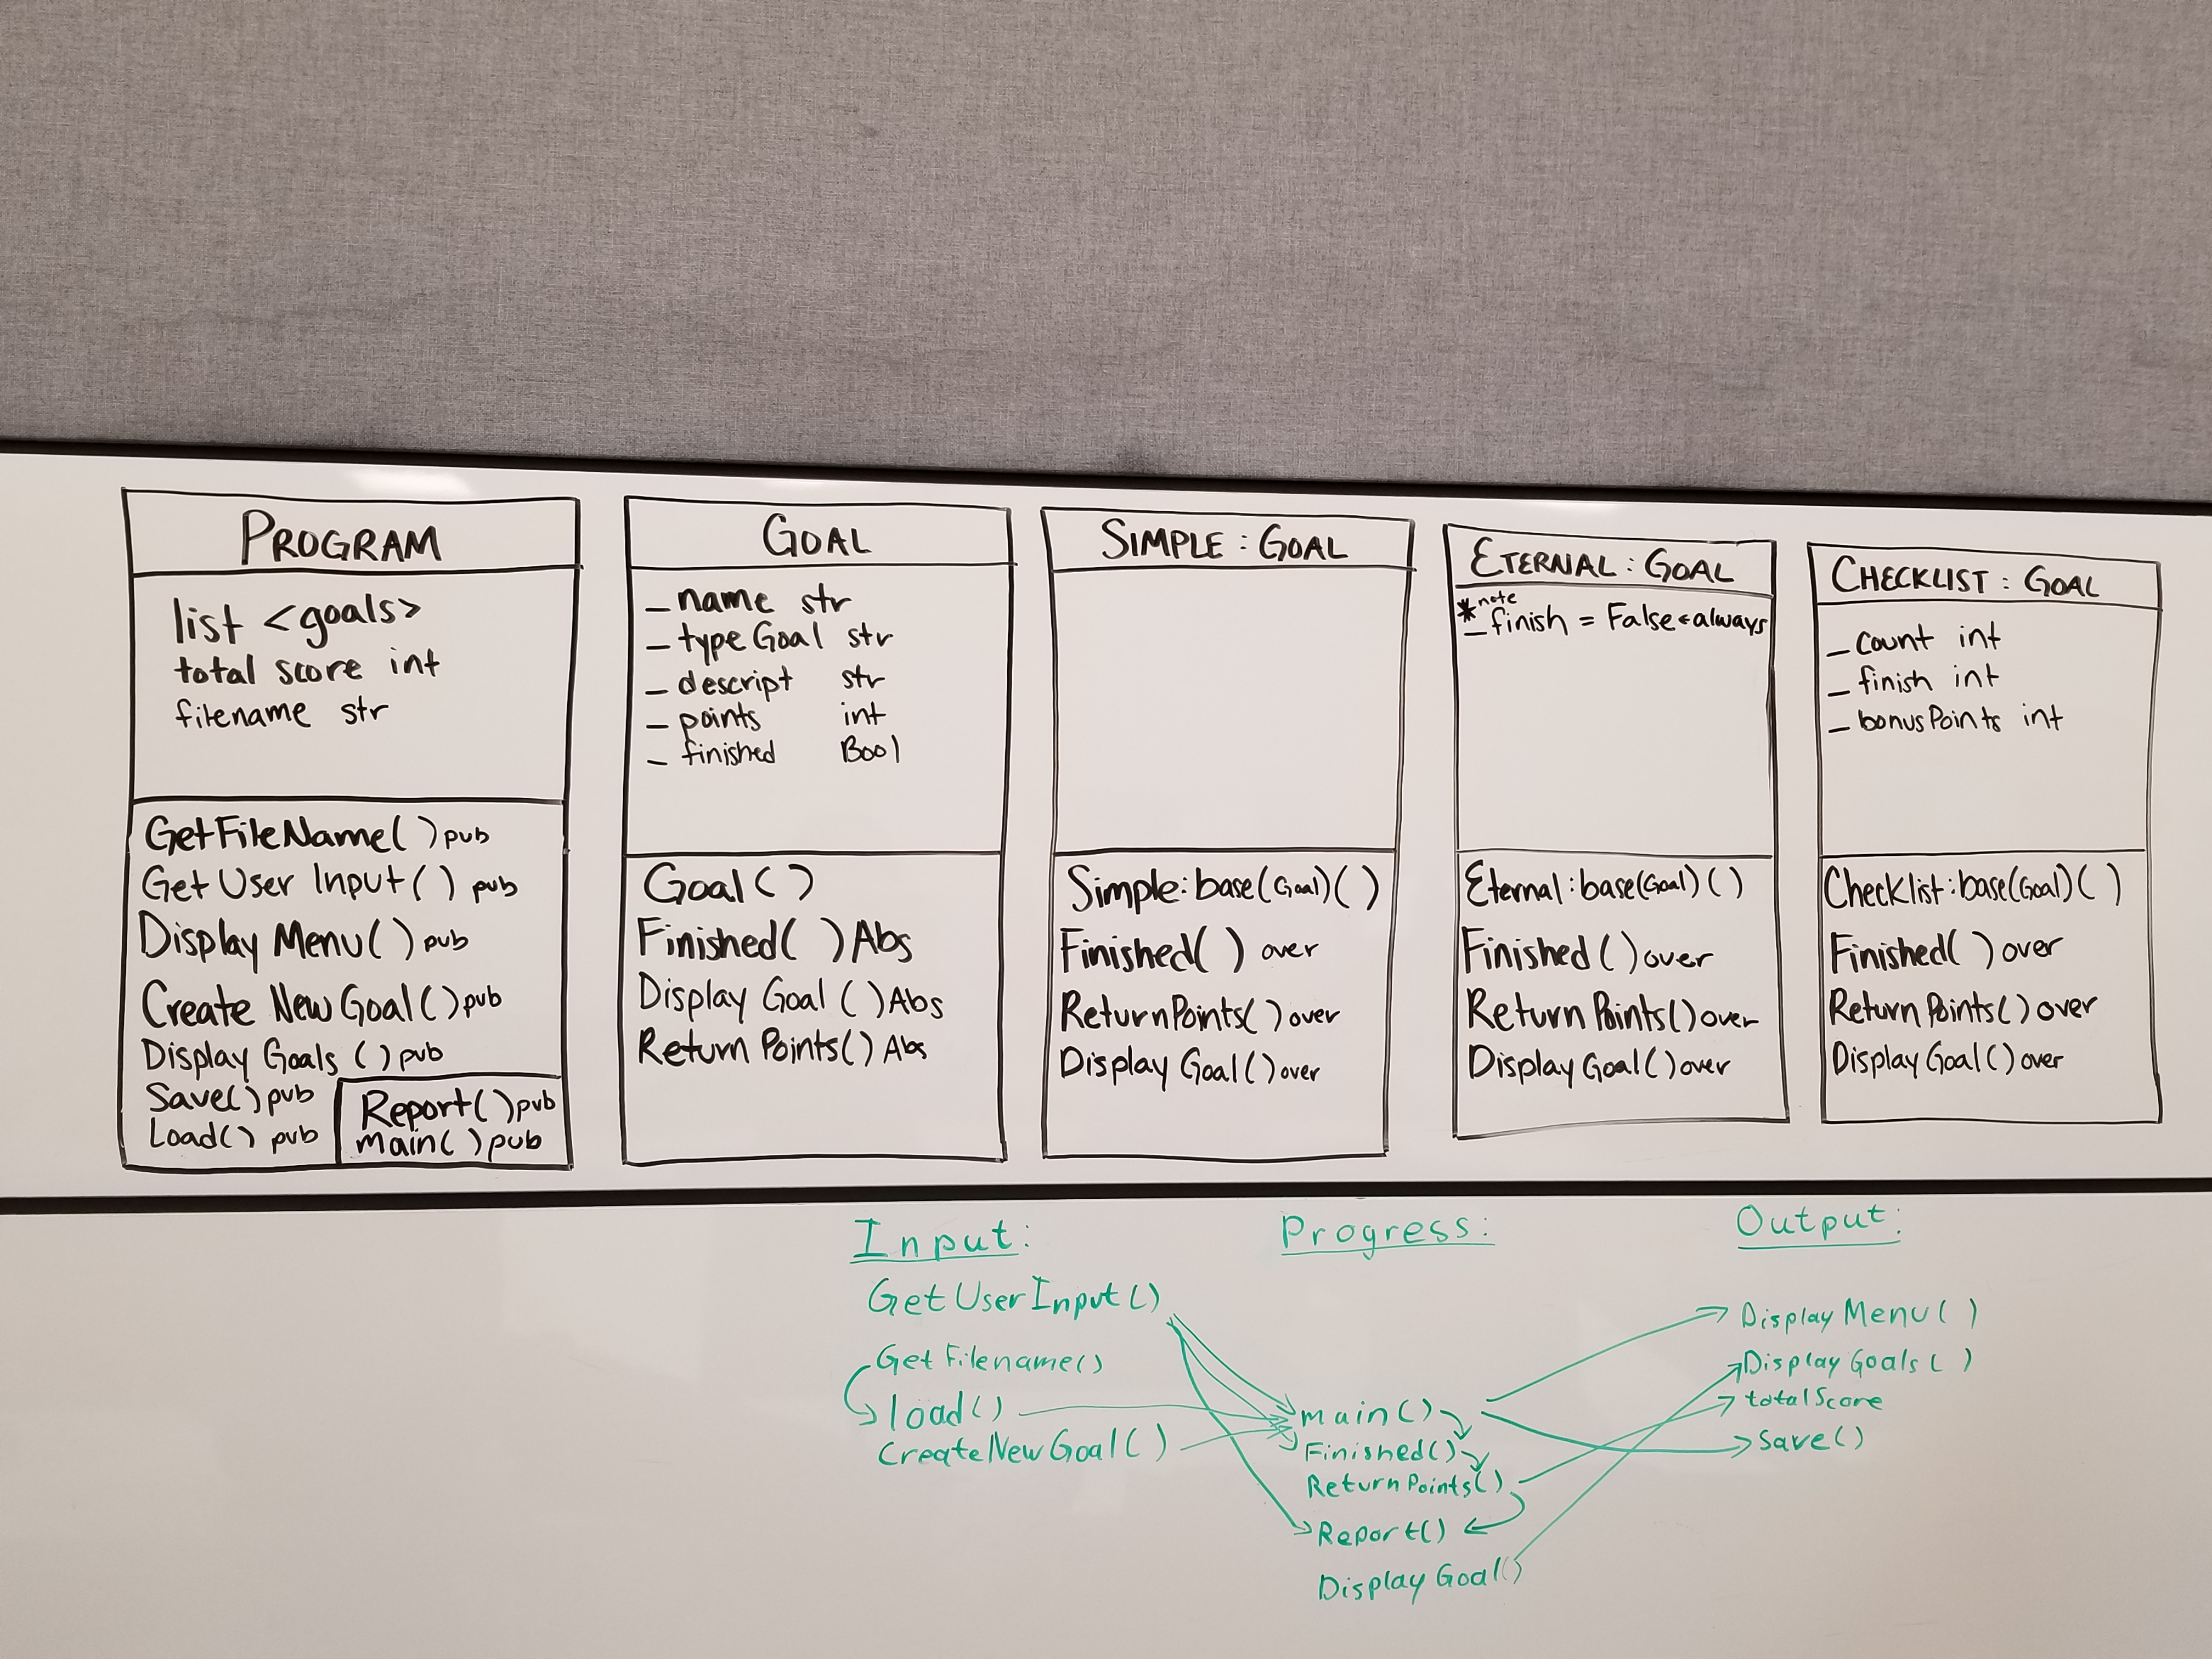 PROGRAM
list <goals>
total score int
filename str
GetFileName( ) pub
Get User Input( ) pub
Display Menu( ) pub
Create New Goal( ) pub
Display Goals ( ) pub
Save( ) pub
Load( ) pub
Report( ) pub
main( ) pub
GOAL
_ name str
_ typeGoal str
_ descript str
_ points int
_ finished Bool
Goal( )
Finished( ) Abs
Display Goal ( ) Abs
Return Points( ) Abs
SIMPLE : GOAL
Simple: base(Goal)( )
Finished( ) over
ReturnPoints( ) over
Display Goal( ) over
ETERNAL : GOAL
* note
_ finish = False ← always
Eternal: base(Goal) ( )
Finished ( ) over
Return Points( ) over
Display Goal( ) over
CHECKLIST : GOAL
_ count int
_ finish int
_ bonusPoints int
Checklist: base(Goal)( )
Finished( ) over
Return Points( ) over
Display Goal( ) over
Input:
GetUserInput()
Get Filename()
load()
CreateNewGoal( )
Progress:
main()
Finished()
ReturnPoints()
Report()
Display Goal()
Output:
Display Menu( )
Display Goals( )
totalScore
Save()